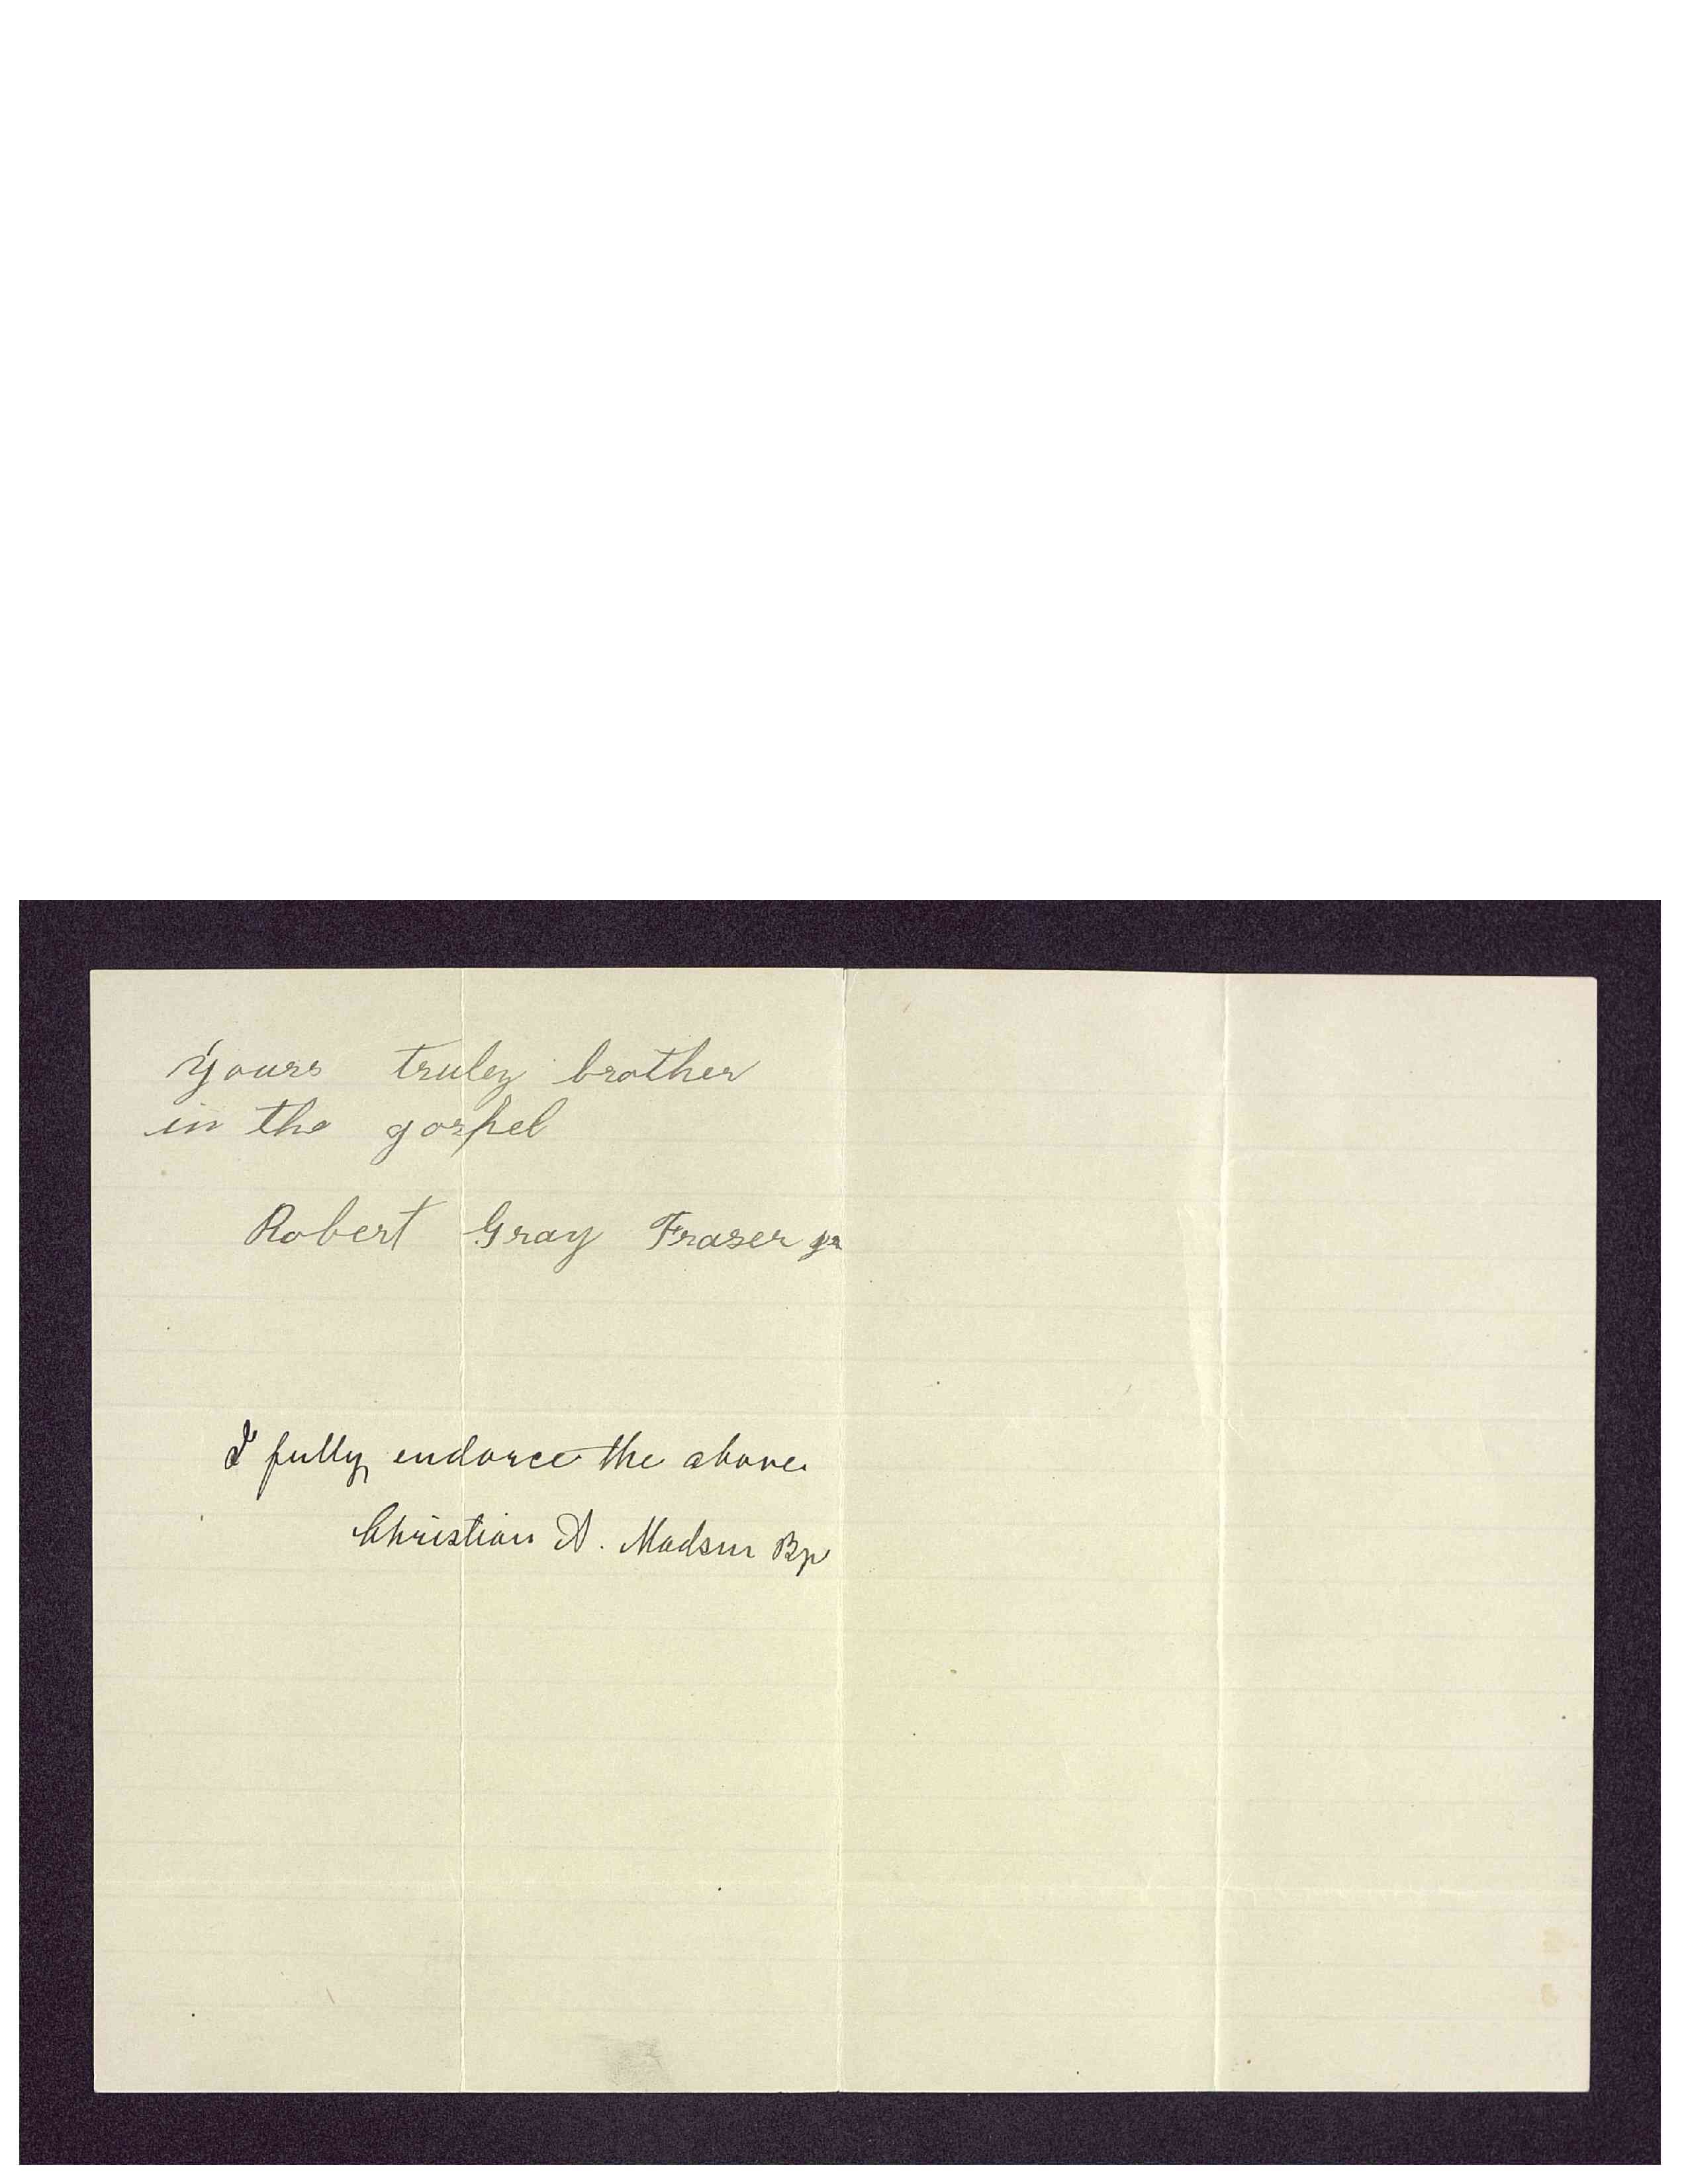 Yours truley brother
in the gospel
Robert Gray Fraser jr
I fully endorce the above.
Christian A. Madsen Bp